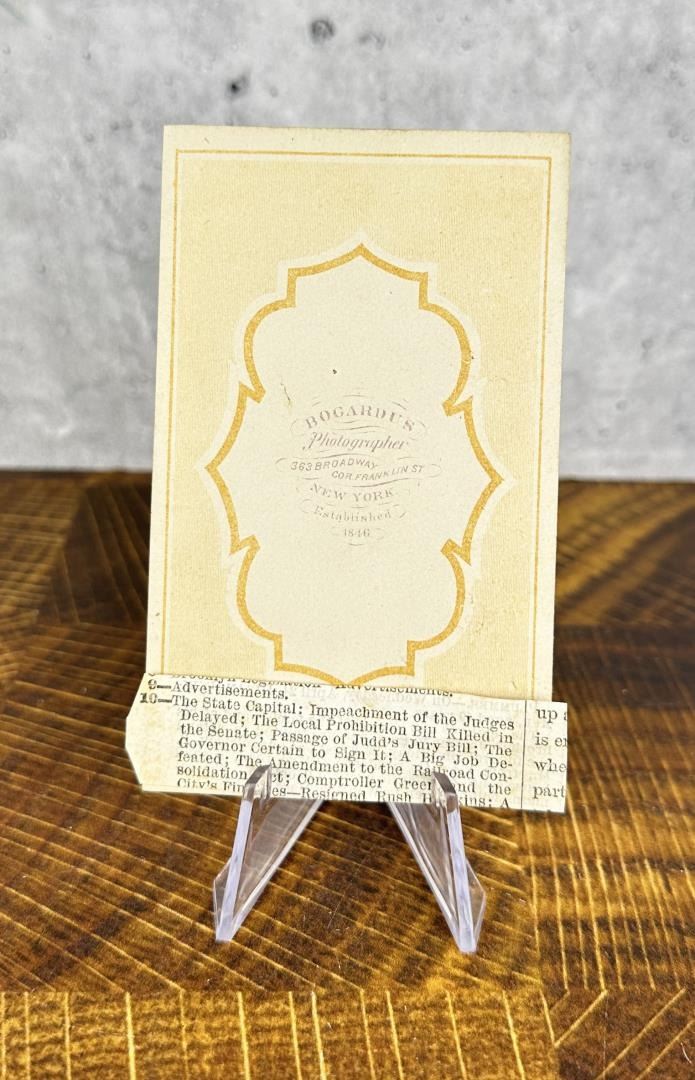 BOGARDUS
Photographer
363 BROADWAY
COR. FRANKLIN ST
NEW YORK
Established
1846
Brooklyn Legislation Advertisements.
9—Advertisements.
10—The State Capital: Impeachment of the Judges
Delayed; The Local Prohibition Bill Killed in
the Senate; Passage of Judd's Jury Bill; The
Governor Certain to Sign It; A Big Job De-
feated; The Amendment to the Railroad Con-
solidation Act; Comptroller Green and the
City's Resigned Rush A
up
is
whe
part